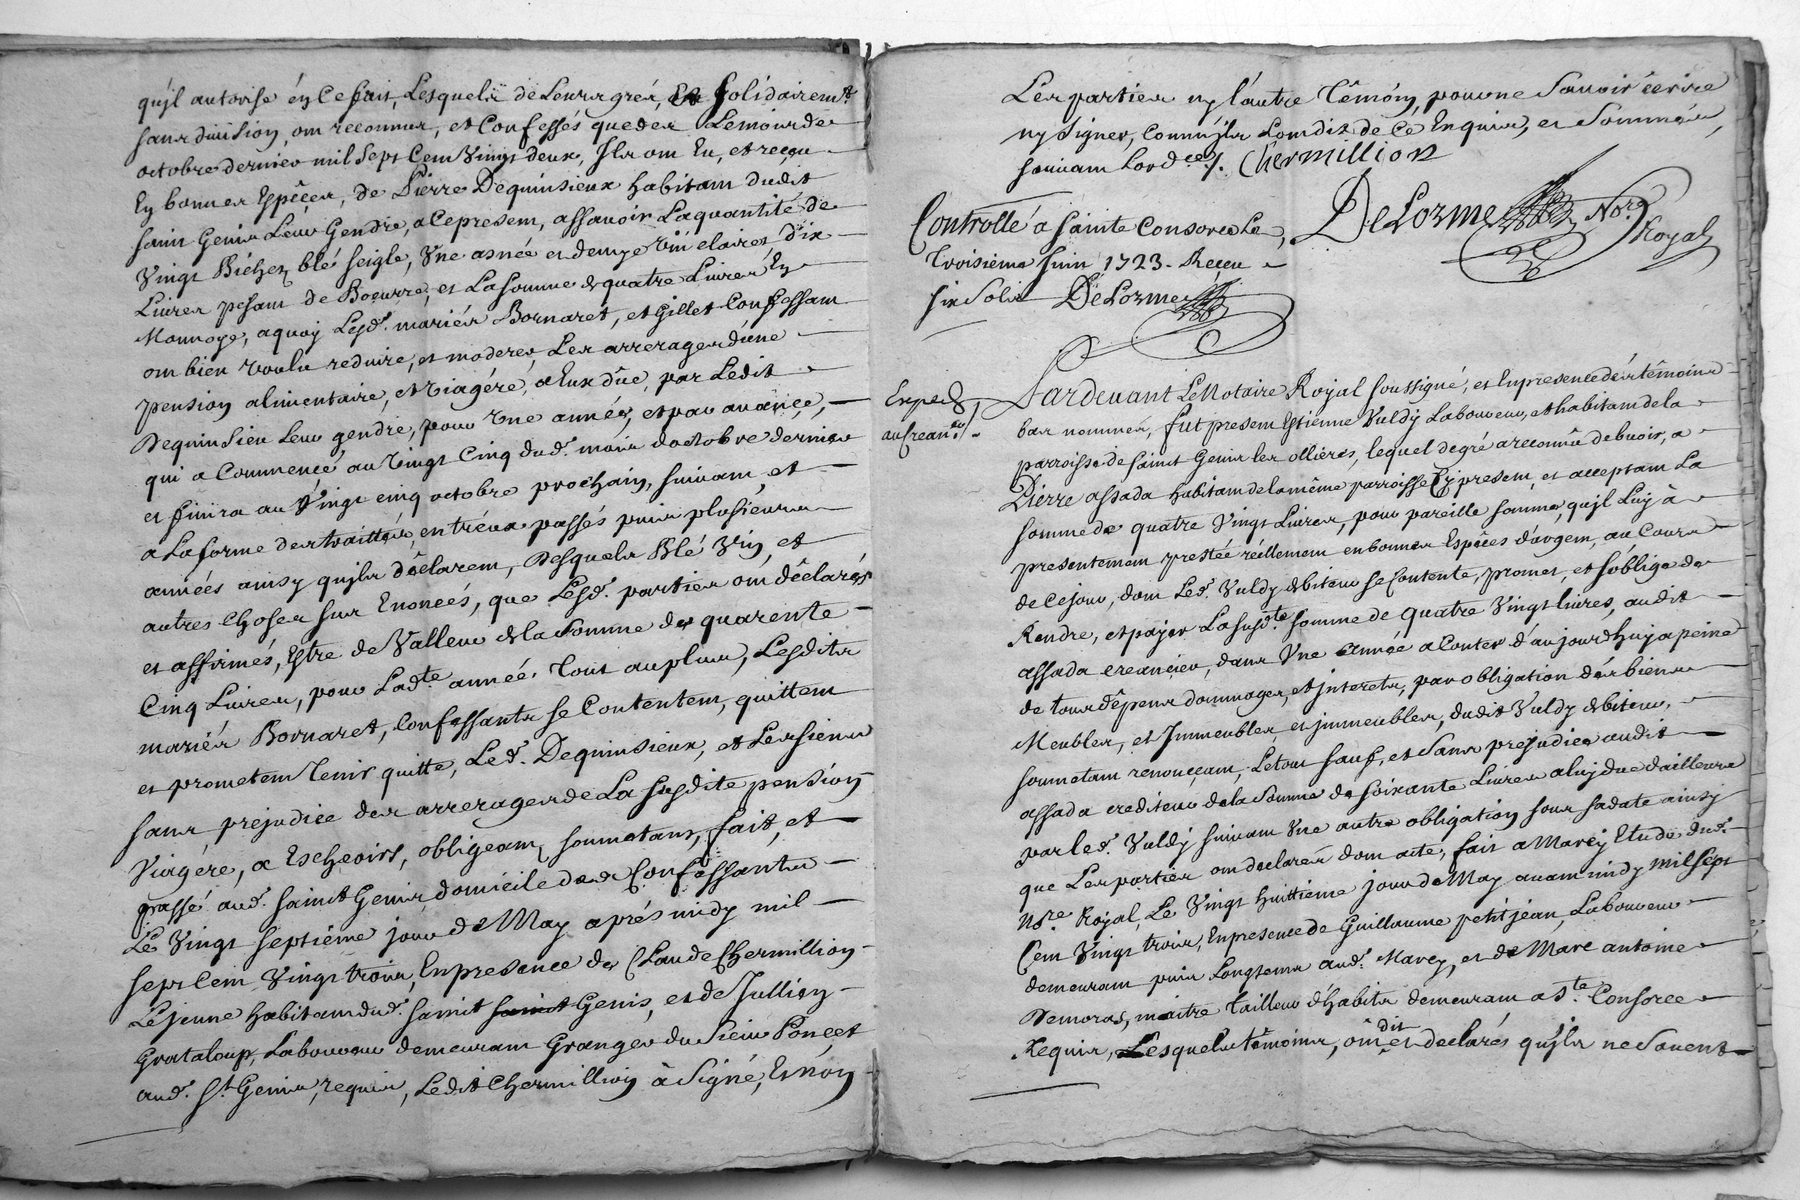 qu'jl autorise én Ce fait, Lesquels de Leurs grés, Et Solidairemt.
sans diuision, ont reconnus, et Confessés que des Le mois de
octobre dernier mil Sept Cent Vingt deux, Jls ont Eu, et reçeu
En bonnes Espêces, de Pierre Dequinsieux habitant dudit
saint Genis Leur Gendre, a Ce present, assauoir La quantité de
Vingt Bichez blé seigle, Vne asnée et demye Vin clairet dix
Liures pesant de Boeurre, et La somme de quatre Liures En
Monnoye, a quoy Lesd. mariés Bornaret, et Gillet Confessant
ont bien voulu reduire, et moderer, Les arrerages d'une
pension alimentaire, et viagére, a Eux dûe, par Ledit
Dequinsieu Leur gendre, pour Vne année, et par auançe,
qui a Commencé au Vingt Cinq dud. mois doctobre dernier
et finira au Vingt cinq octobre prochain, suiuant, et
a La forme des traittés, entréux passés puis plusieurs
années ainsy qu'jls déclarent, Desquels Blé Vin, et
autres choses sus Enoncés, que Lesd. parties ont déclarés
et affirmés, Estre de Valleur de la Somme de quarente
Cinq Liures, pour Ladte. année, Tout au plus, Lesdits
mariés Bornaret, Confessants se Contentent, quittent
et prometent Tenir quitte, Led. Dequinsieux, et Les siens
sans prejudice des arrerages de La susdite pension
Viagére, a Escheoirs, obligeant, soumetans, fait, et
passé aud. saint Genis, domicile des Confessants
Le Vingt septiéme jour de May aprés midy mil
sept Cent Vingt trois, En presence de Claude Chermillion
Le jeune habitant dud. saint saint Genis, et de Jullien
Grataloup, Laboureur demeurant Granger du Sieur Poncet
aud. St. Genis, requis, Ledit Chermillion à Signé, Et nón
Les parties ny l'autre Témóin, pour ne Sauoir écrire
ny signer, Comm'jls L'ont dit de Ce Enquis, et Sommés,
suiuant Lordce. Chermillion
DeLorme Nore. Royal
Controllé a sainte Consorce Le
Troisiéme Juin 1723. Reçeu
six Sols DeLorme
Exped.
au Crean.
Pardeuant Le Notaire Royal soussigné, et En presence dés témoins
bas nommés, fut present Estienne Vuldy Laboureur, et habitant de la
parroisse de saint Genis les ollières, lequel de gré a reconnû debuoir, a
Pierre assada habitant de la même parroisse Cy present, et acceptant La
somme de quatre Vingt Liures, pour pareille somme, qu'jl Luy à
presentement prestée réellement en bonnes Espêces d'argent, au Cours
de Ce jour, dont Led. Vuldy debiteur se Contente, promet, et s'oblige de
Rendre, et payer La susdte. somme de quatre Vingt liures, audit
assada creancier, dans Vne année a Conter d'aujourdhuy a peine
de tous dépens dommages, et jnterets, par obligation dés biens
Meubles, et Jmmeubles et jmmeubles, dudit Vuldy debiteur,
soumetant renonçant, Le tout sauf, et Sans prejudice audit
assada crediteur de la Somme de soixante Liures a luy due d'ailleurs
par led. Vuldy suiuant Vne autre obligation sous sa date ainsy
que Les parties ont declarés dont acte, fait a Marcy Etude dud.
Nore. Royal, Le Vingt huittiéme jour de May auant midy mil sept
Cent Vingt trois, En presence de Guillaume petitjean, Laboureur
demeurant puis Longtems aud. Marcy, et de Marc antoine
Demoras, maitre Tailleur d'habits demeurant a Ste. Consorce
Requis, Lesquels témoins, ont dit et declarés qu'jls ne Sauent